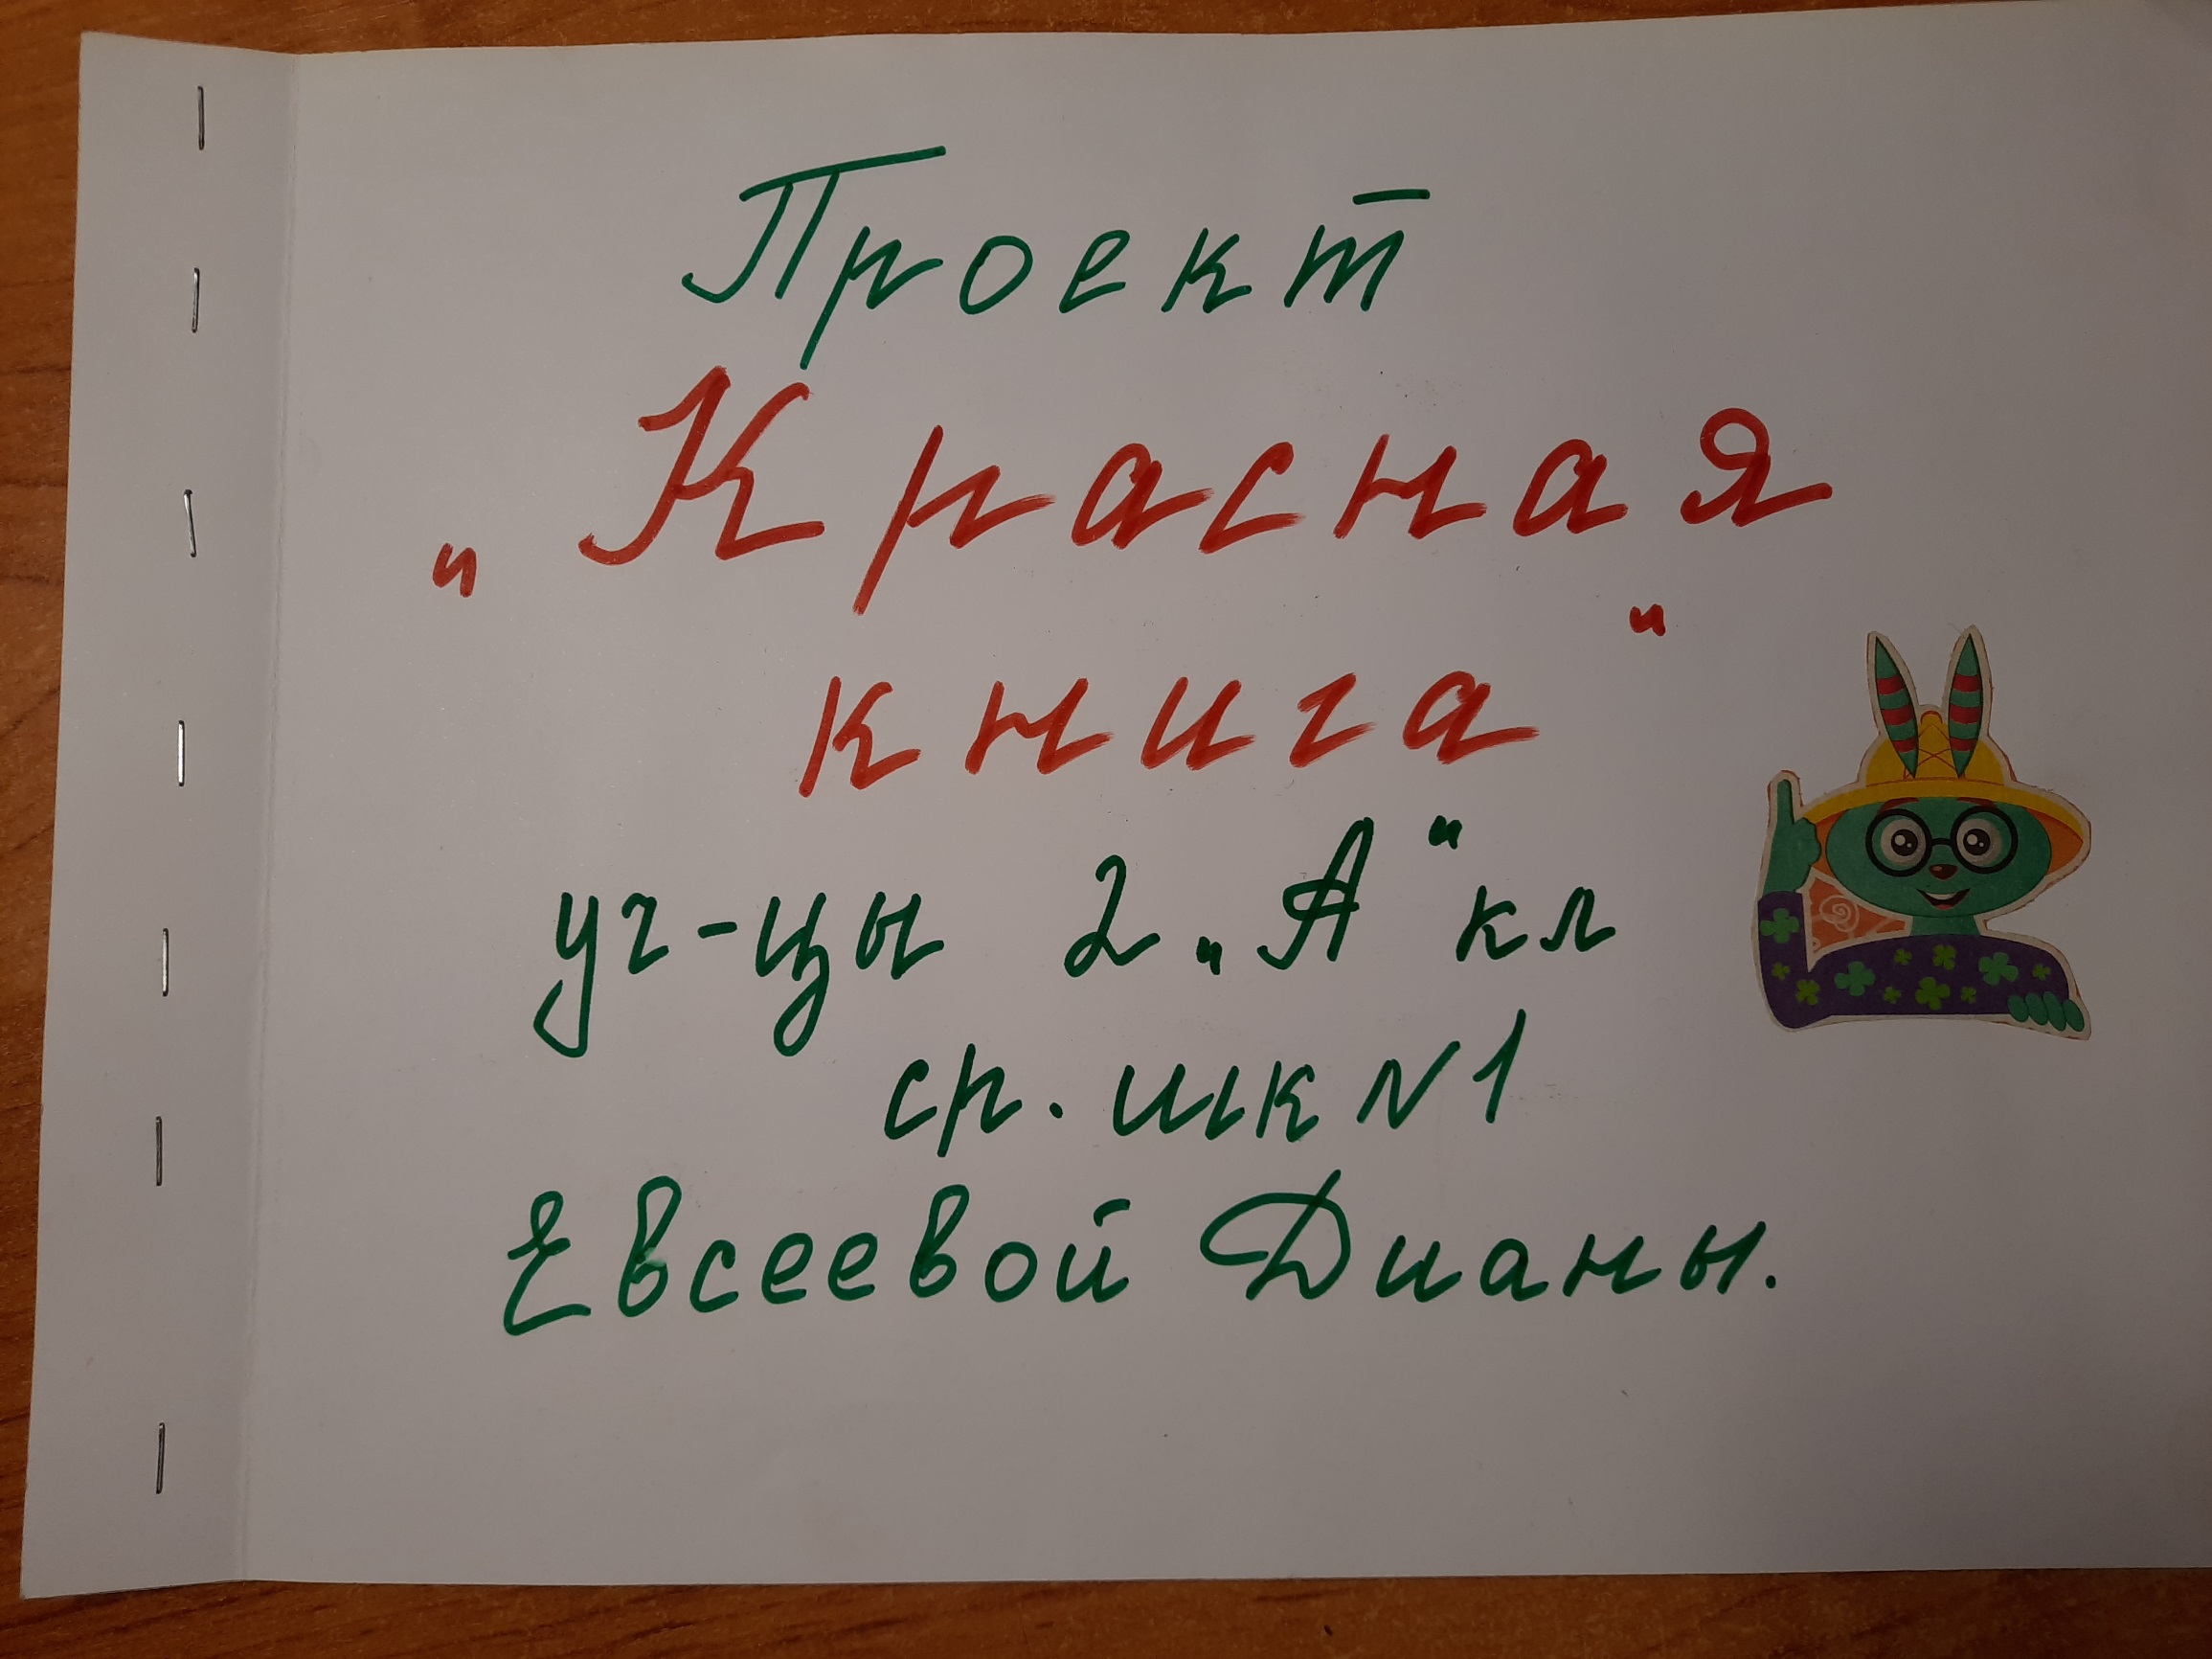 Проект
„Красная
книга“
уч-цы 2 „А“ кл
ср. шк N1
Евсеевой Дианы.